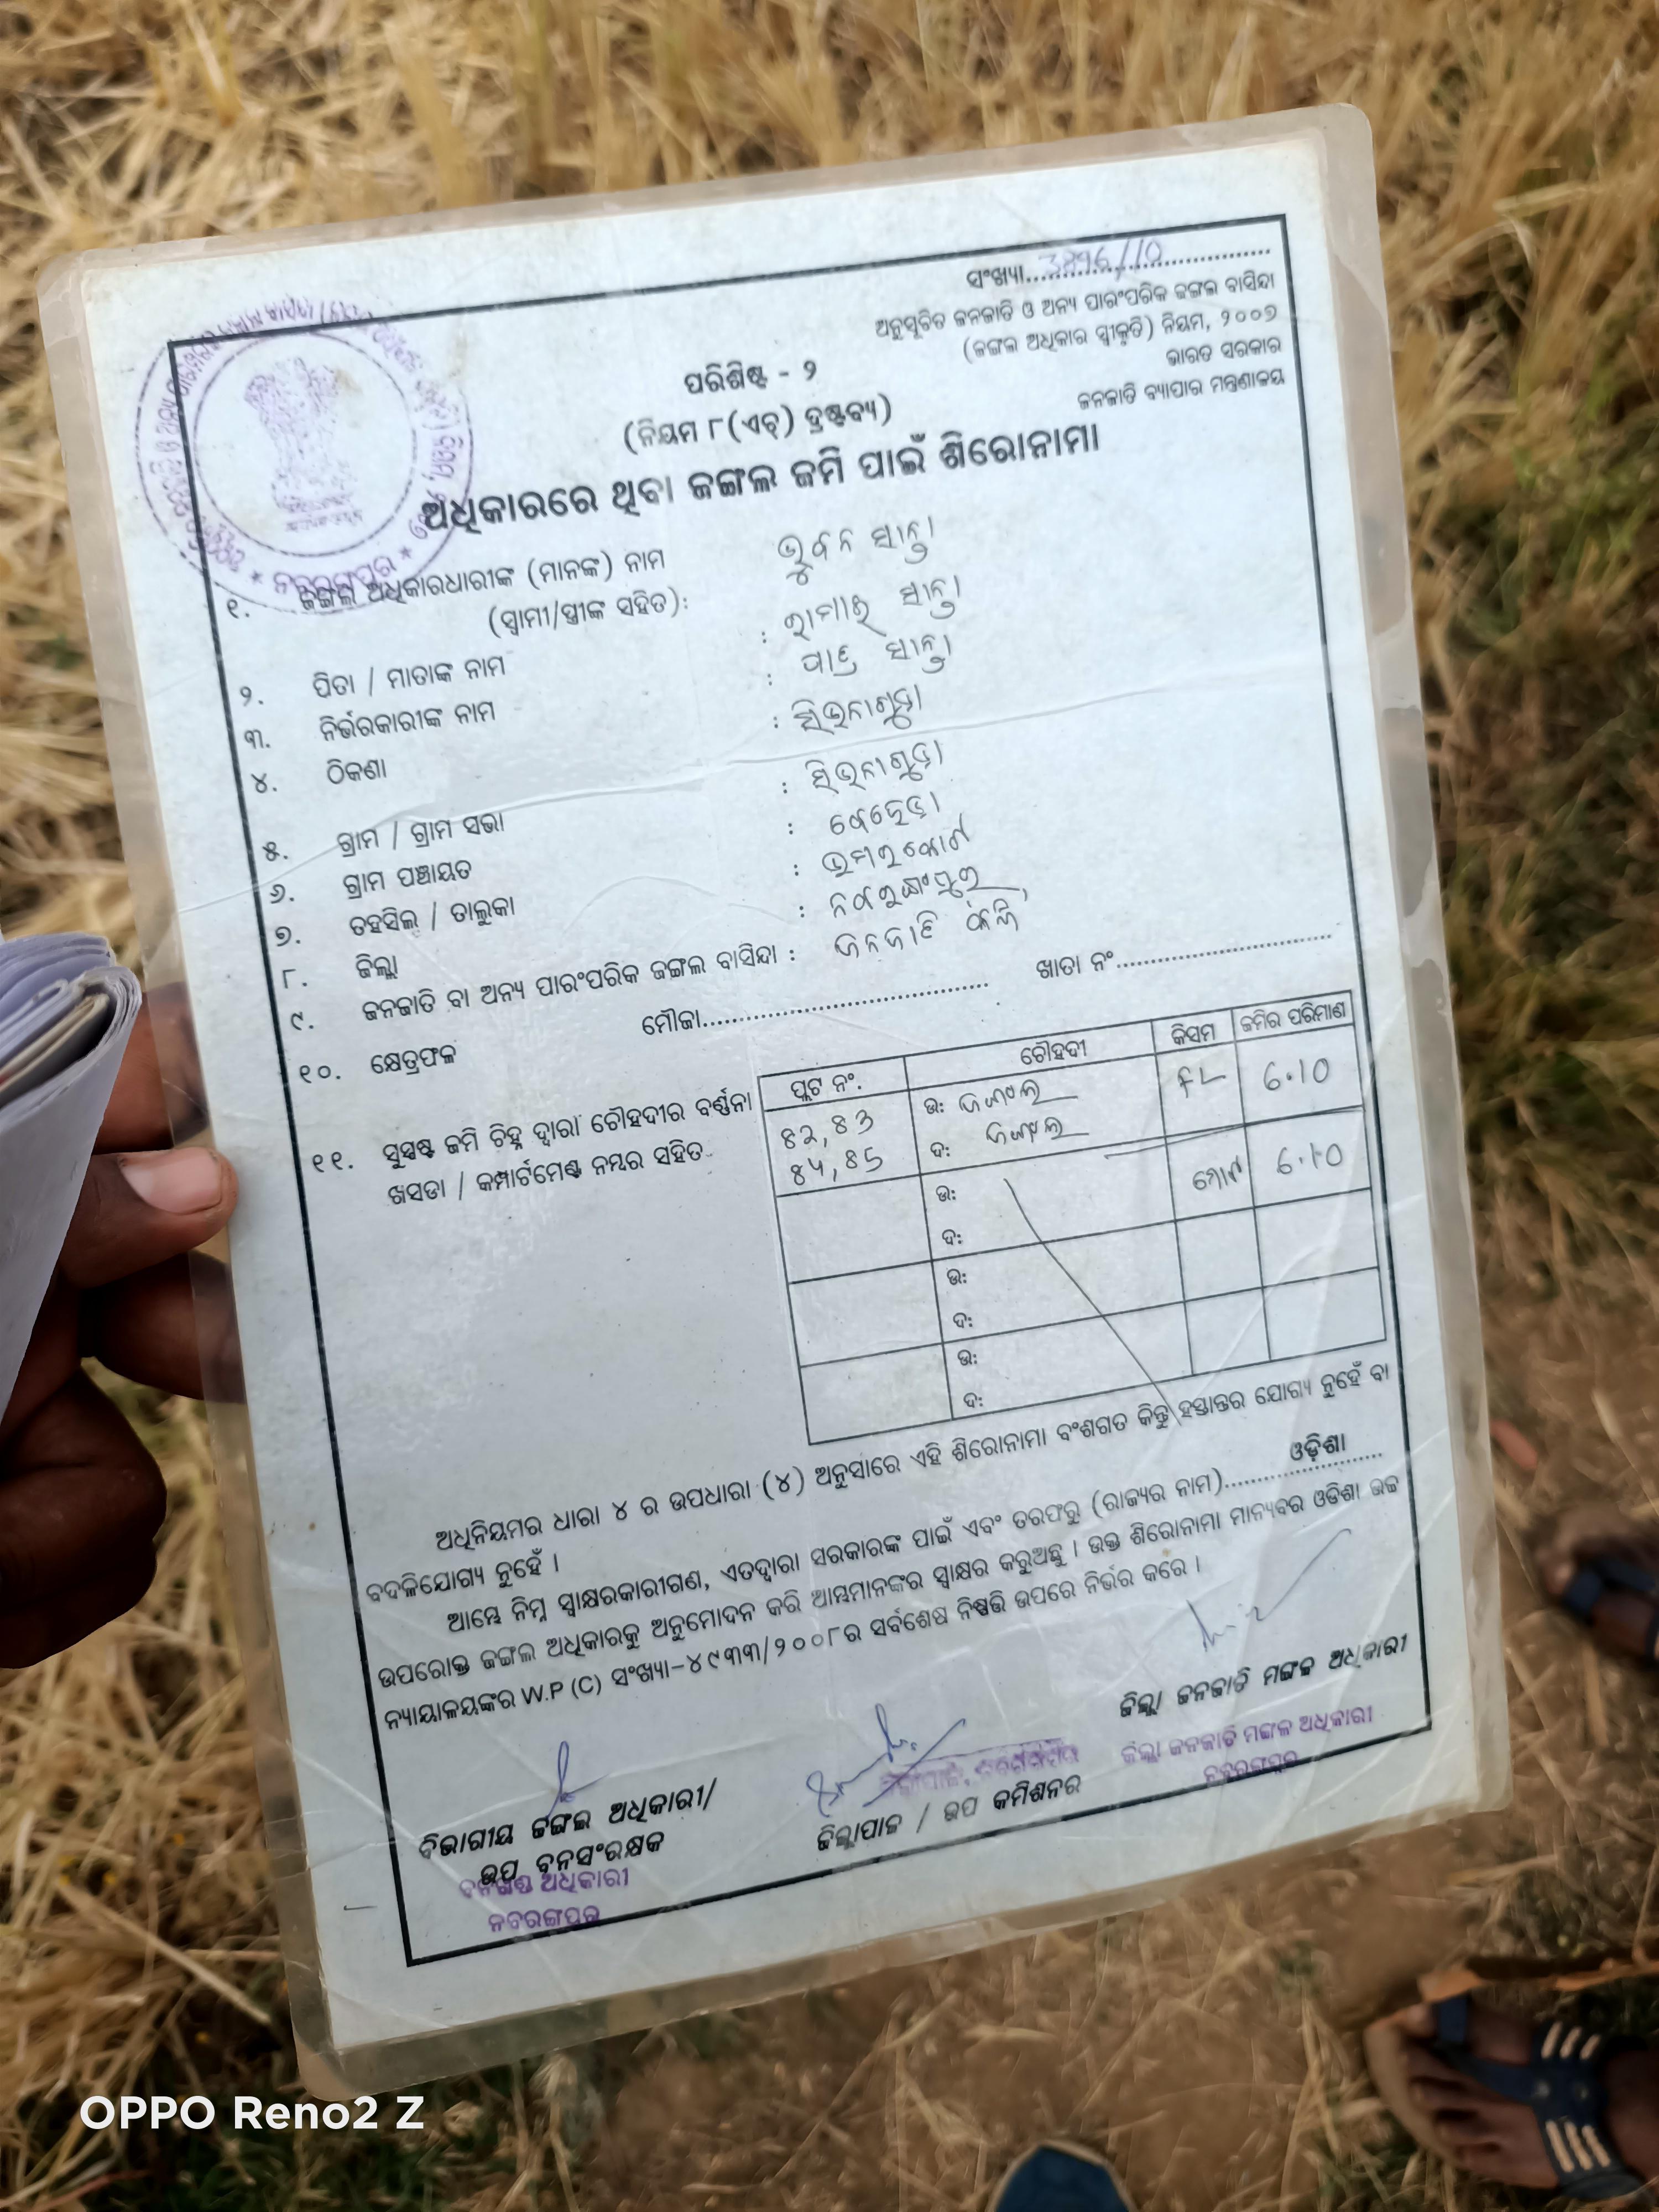 ସଂଖ୍ୟା.................................
ଅନୁସୂଚିତ ଜନଜାତି ଓ ଅନ୍ୟ ପାରଂପରିକ ଜଙ୍ଗଲ ବାସିନ୍ଦା
(ଜଙ୍ଗଲ ଅଧିକାର ସ୍ୱୀକୃତି) ନିୟମ, ୨୦୦୭
ଭାରତ ସରକାର
ଜନଜାତି ବ୍ୟାପାର ମନ୍ତ୍ରଣାଳୟ
ପରିଶିଷ୍ଟ - ୨
(ନିୟମ ୮(ଏଚ୍) ଦ୍ରଷ୍ଟବ୍ୟ)
ଅଧିକାରରେ ଥିବା ଜଙ୍ଗଲ ଜମି ପାଇଁ ଶିରୋନାମା
ନବରଙ୍ଗପୁର
୧. ଜଙ୍ଗଲ ଅଧିକାରଧାରୀଙ୍କ (ମାନଙ୍କ) ନାମ ଭୁବନ ସାନ୍ତା
(ସ୍ୱାମୀ/ସ୍ତ୍ରୀଙ୍କ ସହିତ):
୨. ପିତା / ମାତାଙ୍କ ନାମ : ରାମାଇ ସାନ୍ତା
୩. ନିର୍ଭରକାରୀଙ୍କ ନାମ : ସାନ୍ତା
୪. ଠିକଣା : ସିଭନାଗୁଡା
୫. ଗ୍ରାମ / ଗ୍ରାମ ସଭା : ସିଭନାଗୁଡା
୬. ଗ୍ରାମ ପଞ୍ଚାୟତ :
୭. ତହସିଲ୍ / ତାଲୁକା :
୮. ଜିଲ୍ଲା :
୯. ଜନଜାତି ବା ଅନ୍ୟ ପାରଂପରିକ ଜଙ୍ଗଲ ବାସିନ୍ଦା : ଜନଜାତି
୧୦. କ୍ଷେତ୍ରଫଳ ମୌଜା........................................ ଖାତା ନଂ..............................
୧୧. ସୁସ୍ପଷ୍ଟ ଜମି ଚିହ୍ନ ଦ୍ୱାରା ଚୌହଦୀର ବର୍ଣ୍ଣନା
ଖସଡା / କମ୍ପାର୍ଟମେଣ୍ଟ ନମ୍ବର ସହିତ
ପ୍ଲଟ ନଂ. ଚୌହଦୀ କିସମ ଜମିର ପରିମାଣ
ଉ: ଜଙ୍ଗଲ 6.10
ଦ: ଜଙ୍ଗଲ
ଉ: ମୋଟ 6.10
ଦ:
ଉ:
ଦ:
ଉ:
ଦ:
ଅଧିନିୟମର ଧାରା ୪ ର ଉପଧାରା (୪) ଅନୁସାରେ ଏହି ଶିରୋନାମା ବଂଶଗତ କିନ୍ତୁ ହସ୍ତାନ୍ତର ଯୋଗ୍ୟ ନୁହେଁ ବା
ବଦଳିଯୋଗ୍ୟ ନୁହେଁ ।
ଆମ୍ଭେ ନିମ୍ନ ସ୍ୱାକ୍ଷରକାରୀଗଣ, ଏତଦ୍ୱାରା ସରକାରଙ୍କ ପାଇଁ ଏବଂ ତରଫରୁ (ରାଜ୍ୟର ନାମ)......ଓଡ଼ିଶା......
ଉପରୋକ୍ତ ଜଙ୍ଗଲ ଅଧିକାରକୁ ଅନୁମୋଦନ କରି ଆମ୍ଭମାନଙ୍କର ସ୍ୱାକ୍ଷର କରୁଅଛୁ । ଉକ୍ତ ଶିରୋନାମା ମାନ୍ୟବର ଓଡିଶା ଉଚ୍ଚ
ନ୍ୟାୟାଳୟଙ୍କର W.P (C) ସଂଖ୍ୟା-୪୯୩୩/୨୦୦୮ର ସର୍ବଶେଷ ନିଷ୍ପତ୍ତି ଉପରେ ନିର୍ଭର କରେ ।
ଜିଲ୍ଲା ଜନଜାତି ମଙ୍ଗଳ ଅଧିକାରୀ
ଜିଲ୍ଲା ଜନଜାତି ମଙ୍ଗଳ ଅଧିକାରୀ
ନବରଙ୍ଗପୁର
ଜିଲ୍ଲାପାଳ / ଉପ କମିଶନର
ବିଭାଗୀୟ ଜଙ୍ଗଲ ଅଧିକାରୀ/
ଉପ ବନସଂରକ୍ଷକ
ବନଖଣ୍ଡ ଅଧିକାରୀ
ନବରଙ୍ଗପୁର
OPPO Reno2 Z